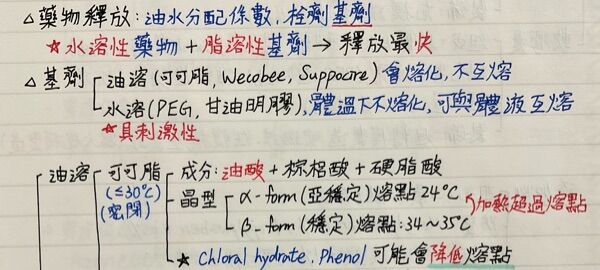 △藥物釋放:油水分配係數,栓劑基劑
★水溶性藥物+脂溶性基劑→釋放最快
△基劑 油溶(可可脂,Wecobee,Suppocire)會熔化,不互溶
水溶(PEG,甘油明膠),體溫下不熔化,可與體液互溶
★具刺激性
油溶 可可脂 成分:油酸+棕梠酸+硬脂酸
(≤30℃) 晶型 α-form(亞穩定)熔點24℃ 加熱超過熔點
(密閉) β-form(穩定)熔點:34~35℃
★ Chloral hydrate, Phenol 可能會降低熔點